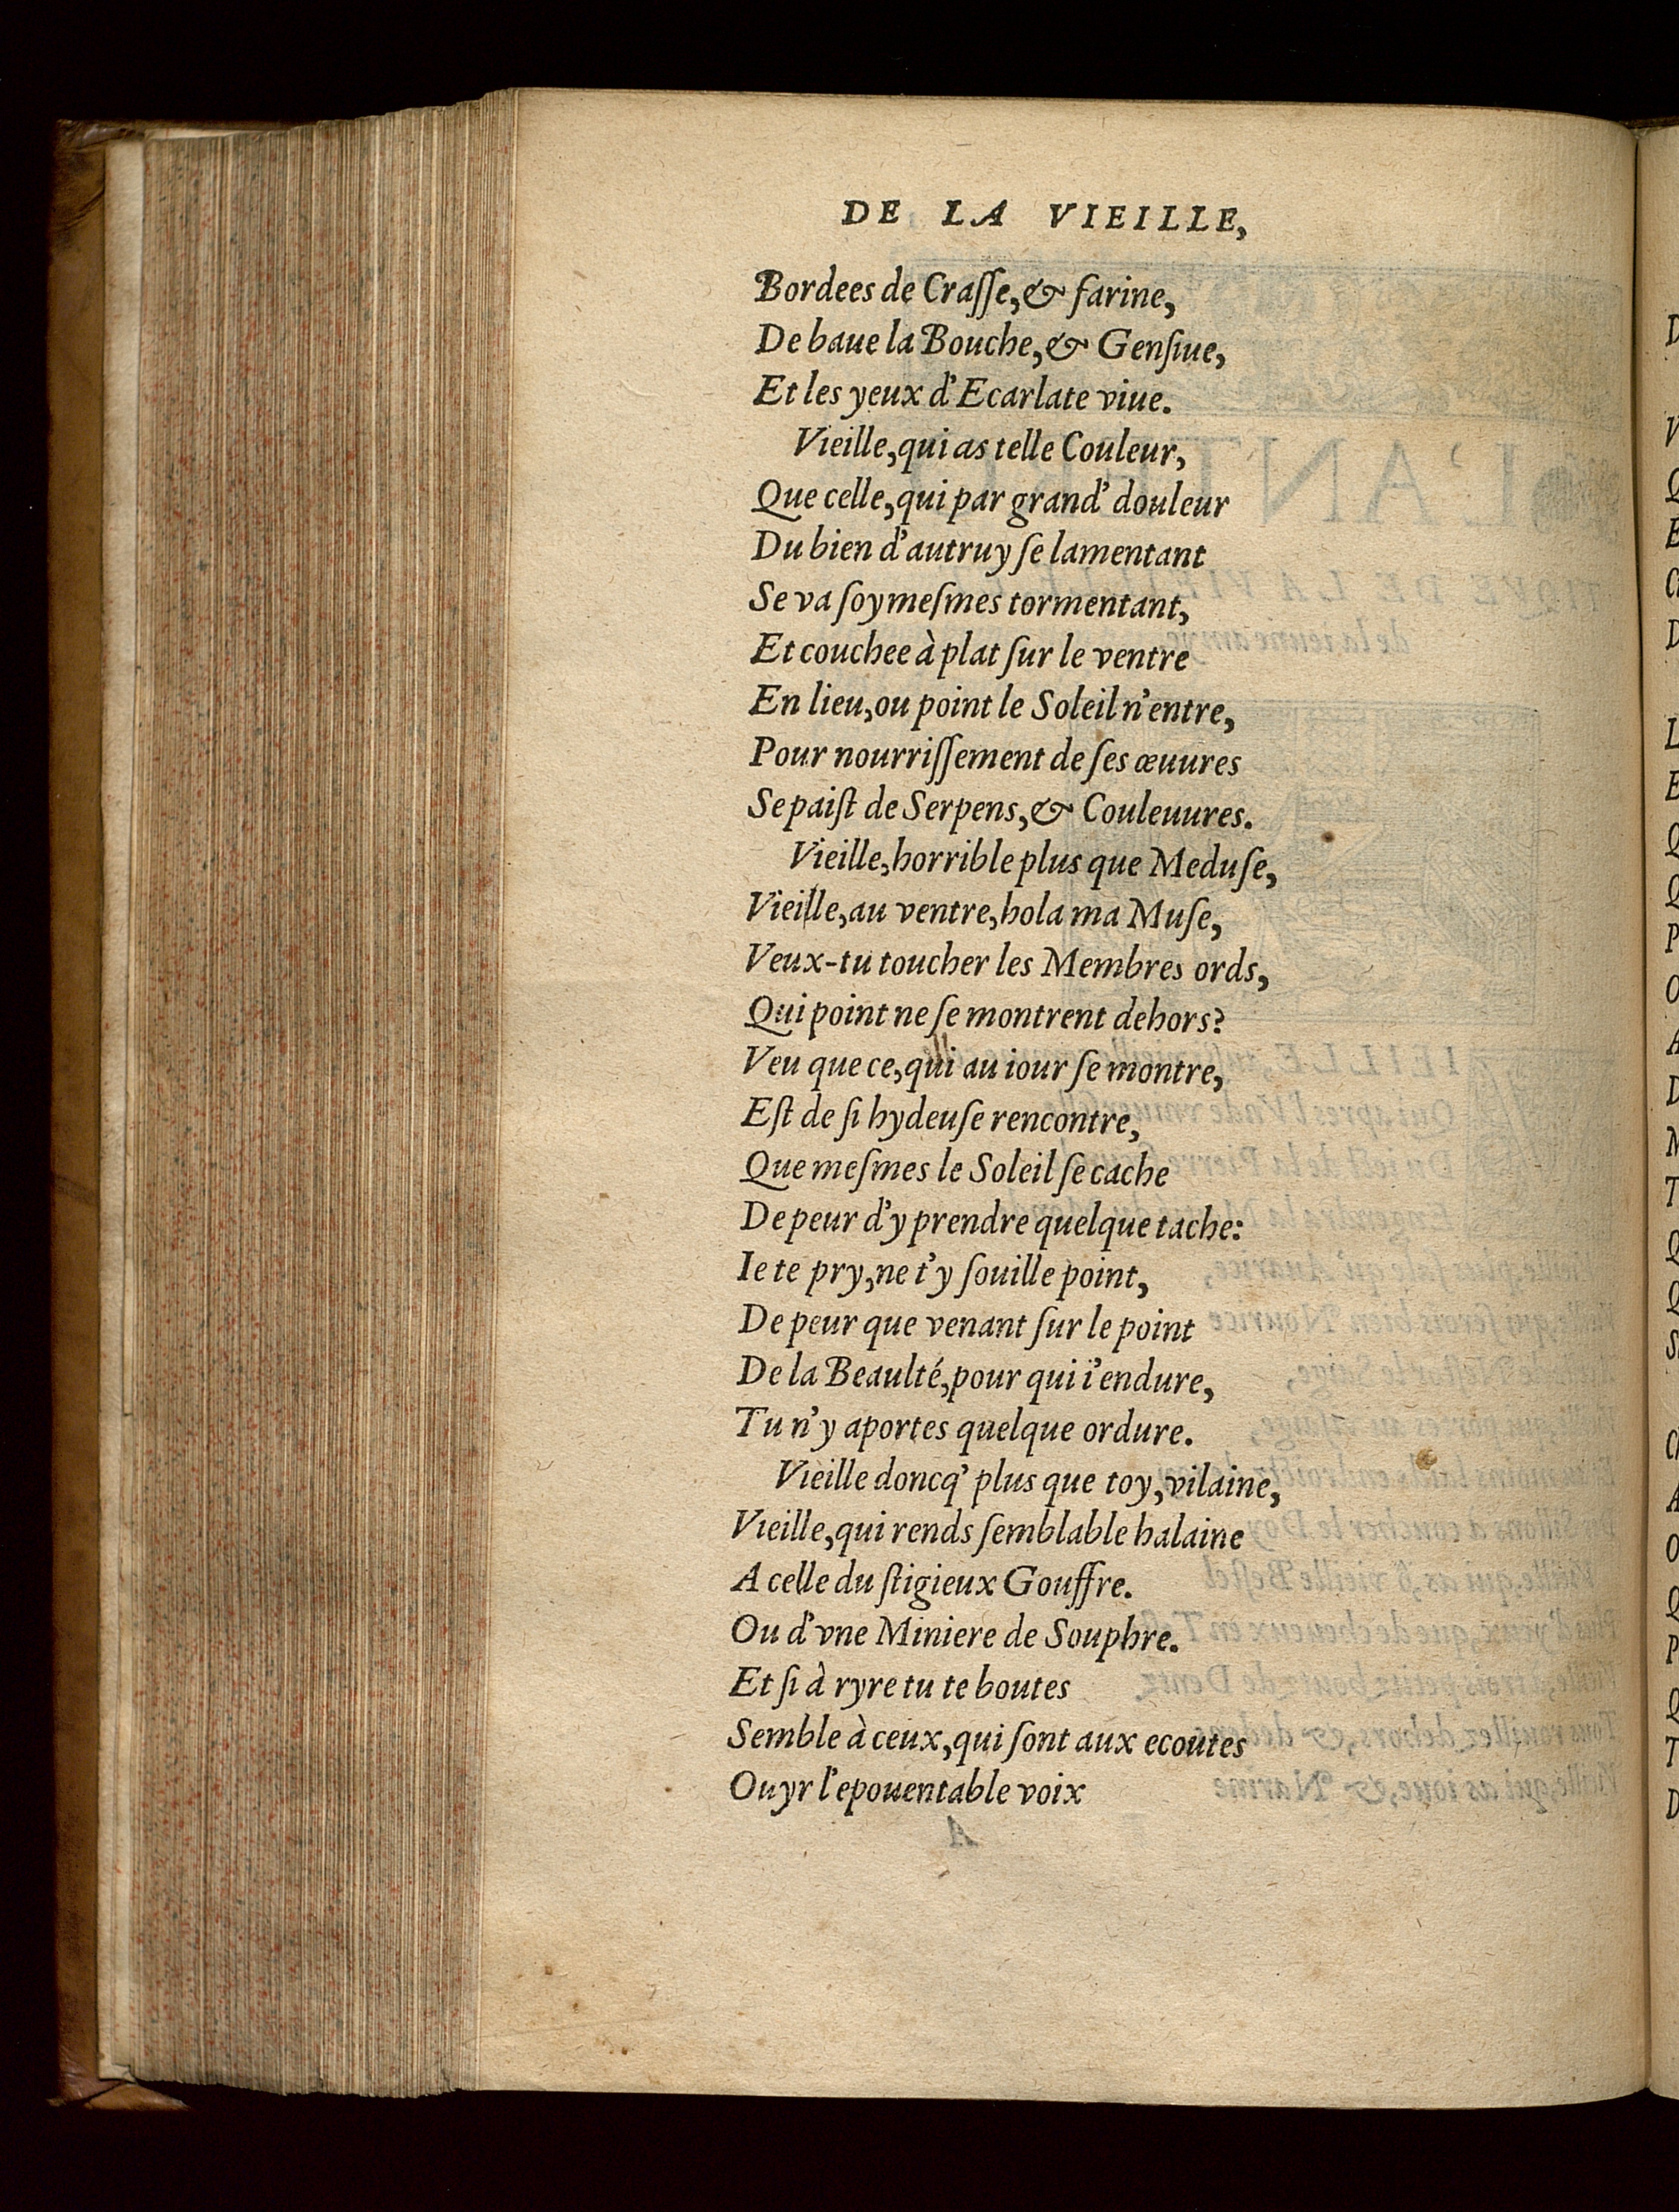 DE LA VIEILLE,
Bordees de Craſſe, & farine,
De baue la Bouche, & Genſiue,
Et les yeux d'Ecarlate viue.
Vieille, qui as telle Couleur,
Que celle, qui par grand' douleur
Du bien d'autruy ſe lamentant
Se va ſoymeſmes tormentant,
Et couchee à plat ſur le ventre
En lieu, ou point le Soleil n'entre,
Pour nourriſſement de ſes œuures
Se paiſt de Serpens, & Couleuures.
Vieille, horrible plus que Meduſe,
Vieille, au ventre, hola ma Muſe,
Veux-tu toucher les Membres ords,
Qui point ne ſe montrent dehors?
Veu que ce, qui au iour ſe montre,
Eſt de ſi hydeuſe rencontre,
Que meſmes le Soleil ſe cache
De peur d'y prendre quelque tache:
Ie te pry, ne t'y ſouille point,
De peur que venant ſur le point
De la Beaulté, pour qui i'endure,
Tu n'y aportes quelque ordure.
Vieille doncq' plus que toy, vilaine,
Vieille, qui rends ſemblable halaine
A celle du ſtigieux Gouffre.
Ou d'vne Miniere de Souphre.
Et ſi à ryre tu te boutes
Semble à ceux, qui ſont aux ecoutes
Ouyr l'epouentable voix